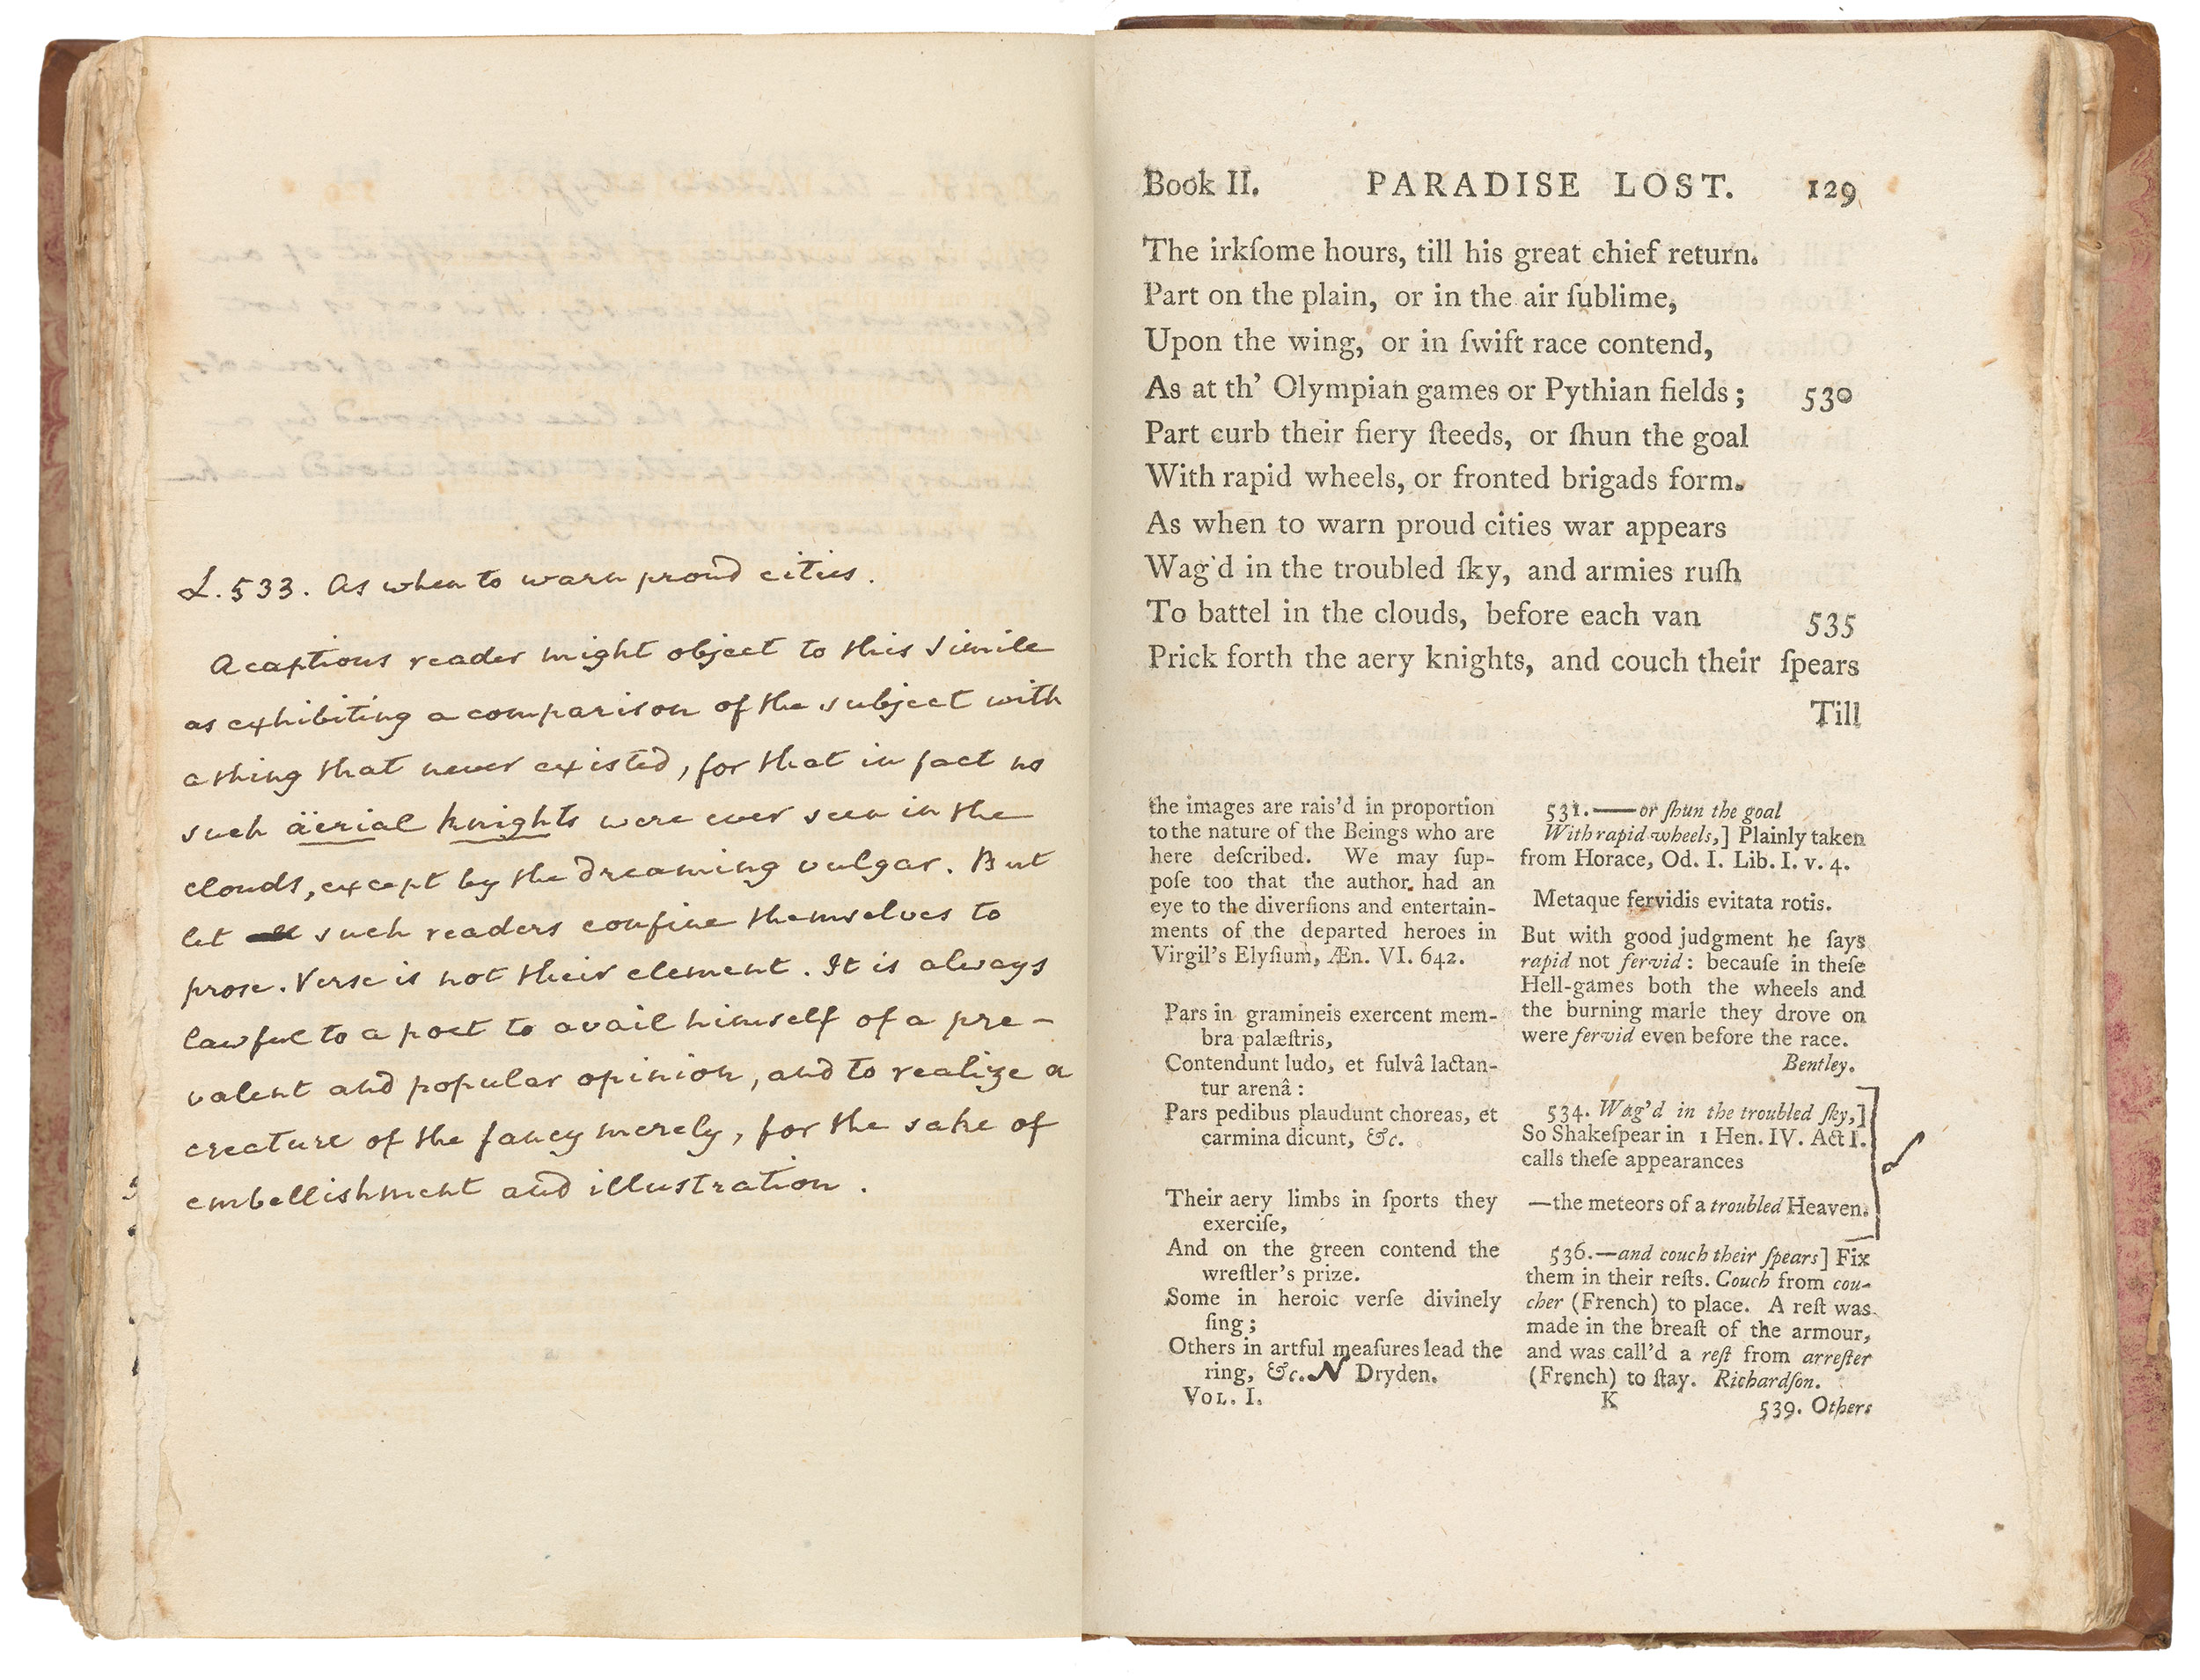 L. 533. As when to warn proud cities.
A captious reader might object to this simile
as exhibiting a comparison of the subject with
a thing that never existed, for that in fact no
such äerial knights were ever seen in the
clouds, except by the dreaming vulgar. But
let such readers confine themselves to
prose. Verse is not their element. It is always
lawful to a poet to avail himself of a pre-
valent and popular opinion, and to realize a
creature of the fancy merely, for the sake of
embellishment and illustration.
Book II. PARADISE LOST. 129
The irkſome hours, till his great chief return.
Part on the plain, or in the air ſublime,
Upon the wing, or in ſwift race contend,
As at th' Olympian games or Pythian fields; 530
Part curb their fiery ſteeds, or ſhun the goal
With rapid wheels, or fronted brigads form.
As when to warn proud cities war appears
Wag'd in the troubled ſky, and armies ruſh
To battel in the clouds, before each van 535
Prick forth the aery knights, and couch their ſpears
Till
the images are rais'd in proportion
to the nature of the Beings who are
here deſcribed. We may ſup-
poſe too that the author had an
eye to the diverſions and entertain-
ments of the departed heroes in
Virgil's Elyſium, Æn. VI. 642.
Pars in gramineis exercent mem-
bra palæſtris,
Contendunt ludo, et fulvâ luctan-
tur arenâ:
Pars pedibus plaudunt choreas, et
carmina dicunt, &c.
Their aery limbs in ſports they
exerciſe,
And on the green contend the
wreſtler's prize.
Some in heroic verſe divinely
ſing;
Others in artful meaſures lead the
ring, &c. N Dryden.
VOL. I.
531.—or ſhun the goal
With rapid wheels,] Plainly taken
from Horace, Od. I. Lib. I. v. 4.
Metaque fervidis evitata rotis.
But with good judgment he ſays
rapid not fervid: becauſe in theſe
Hell-games both the wheels and
the burning marle they drove on
were fervid even before the race.
Bentley.
534. Wag'd in the troubled ſky,]
So Shakeſpear in 1 Hen. IV. Act I.
calls theſe appearances
—the meteors of a troubled Heaven.
536.—and couch their ſpears] Fix
them in their reſts. Couch from cou-
cher (French) to place. A reſt was
made in the breaſt of the armour,
and was call'd a reſt from arreſter
(French) to ſtay. Richardſon.
K 539. Others